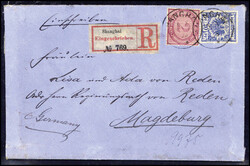 Einschreiben
Shanghai
Eingeschrieben.
R
№ 769.
Fräulein
Lisa und Ada von Reden
Adr. Herrn Regierungsrath von
Reden
Magdeburg
Germany